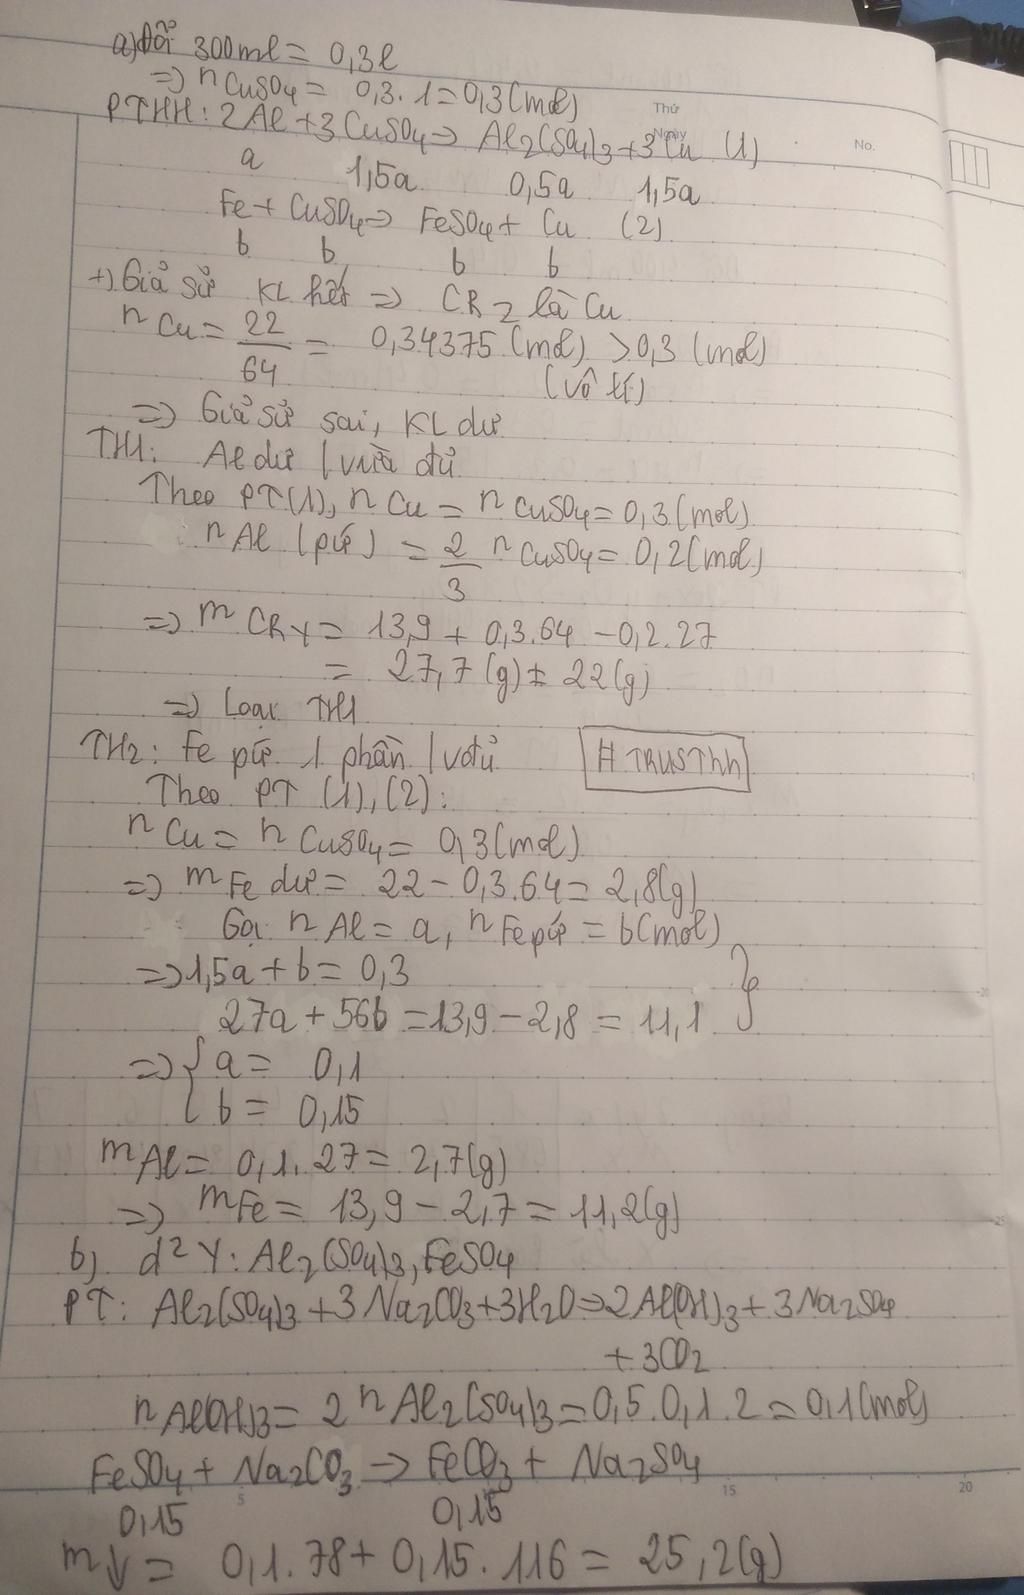 a) Đổi 300ml = 0,3l
=> nCuSO4 = 0,3.1 = 0,3 (mol)
Thứ
PTHH: 2Al + 3CuSO4 => Al2(SO4)3 + 3Cu (1)
Ngày
No.
a 1,5a 0,5a 1,5a
Fe + CuSO4 => FeSO4 + Cu (2)
b b b b
+) Giả sử KL hết => CR Z là Cu
nCu = 22/64 = 0,34375 (mol) > 0,3 (mol)
(vô lí)
=> Giả sử sai, KL dư
TH1: Al dư / vừa đủ
Theo PT(1), nCu = nCuSO4 = 0,3 (mol)
nAl (pứ) = 2/3 nCuSO4 = 0,2 (mol)
=> mCRY = 13,9 + 0,3.64 - 0,2.27
= 27,7 (g) ≠ 22 (g)
=> Loại TH1
TH2: Fe pứ 1 phần / vđủ
# TRUSThh
Theo PT (1), (2):
nCu = nCuSO4 = 0,3 (mol)
=> mFe dư = 22 - 0,3.64 = 2,8 (g)
Gọi nAl = a, nFe pứ = b (mol)
=> 1,5a + b = 0,3
27a + 56b = 13,9 - 2,8 = 11,1 }
=> { a = 0,1
b = 0,15
mAl = 0,1.27 = 2,7 (g)
=> mFe = 13,9 - 2,7 = 11,2 (g)
b) d² Y: Al2(SO4)3, FeSO4
PT: Al2(SO4)3 + 3Na2CO3 + 3H2O => 2Al(OH)3 + 3Na2SO4
+ 3CO2
nAl(OH)3 = 2nAl2(SO4)3 = 0,5.0,1.2 = 0,1 (mol)
FeSO4 + Na2CO3 -> FeCO3 + Na2SO4
5 15 20
0,15 0,15
m↓ = 0,1.78 + 0,15.116 = 25,2 (g)